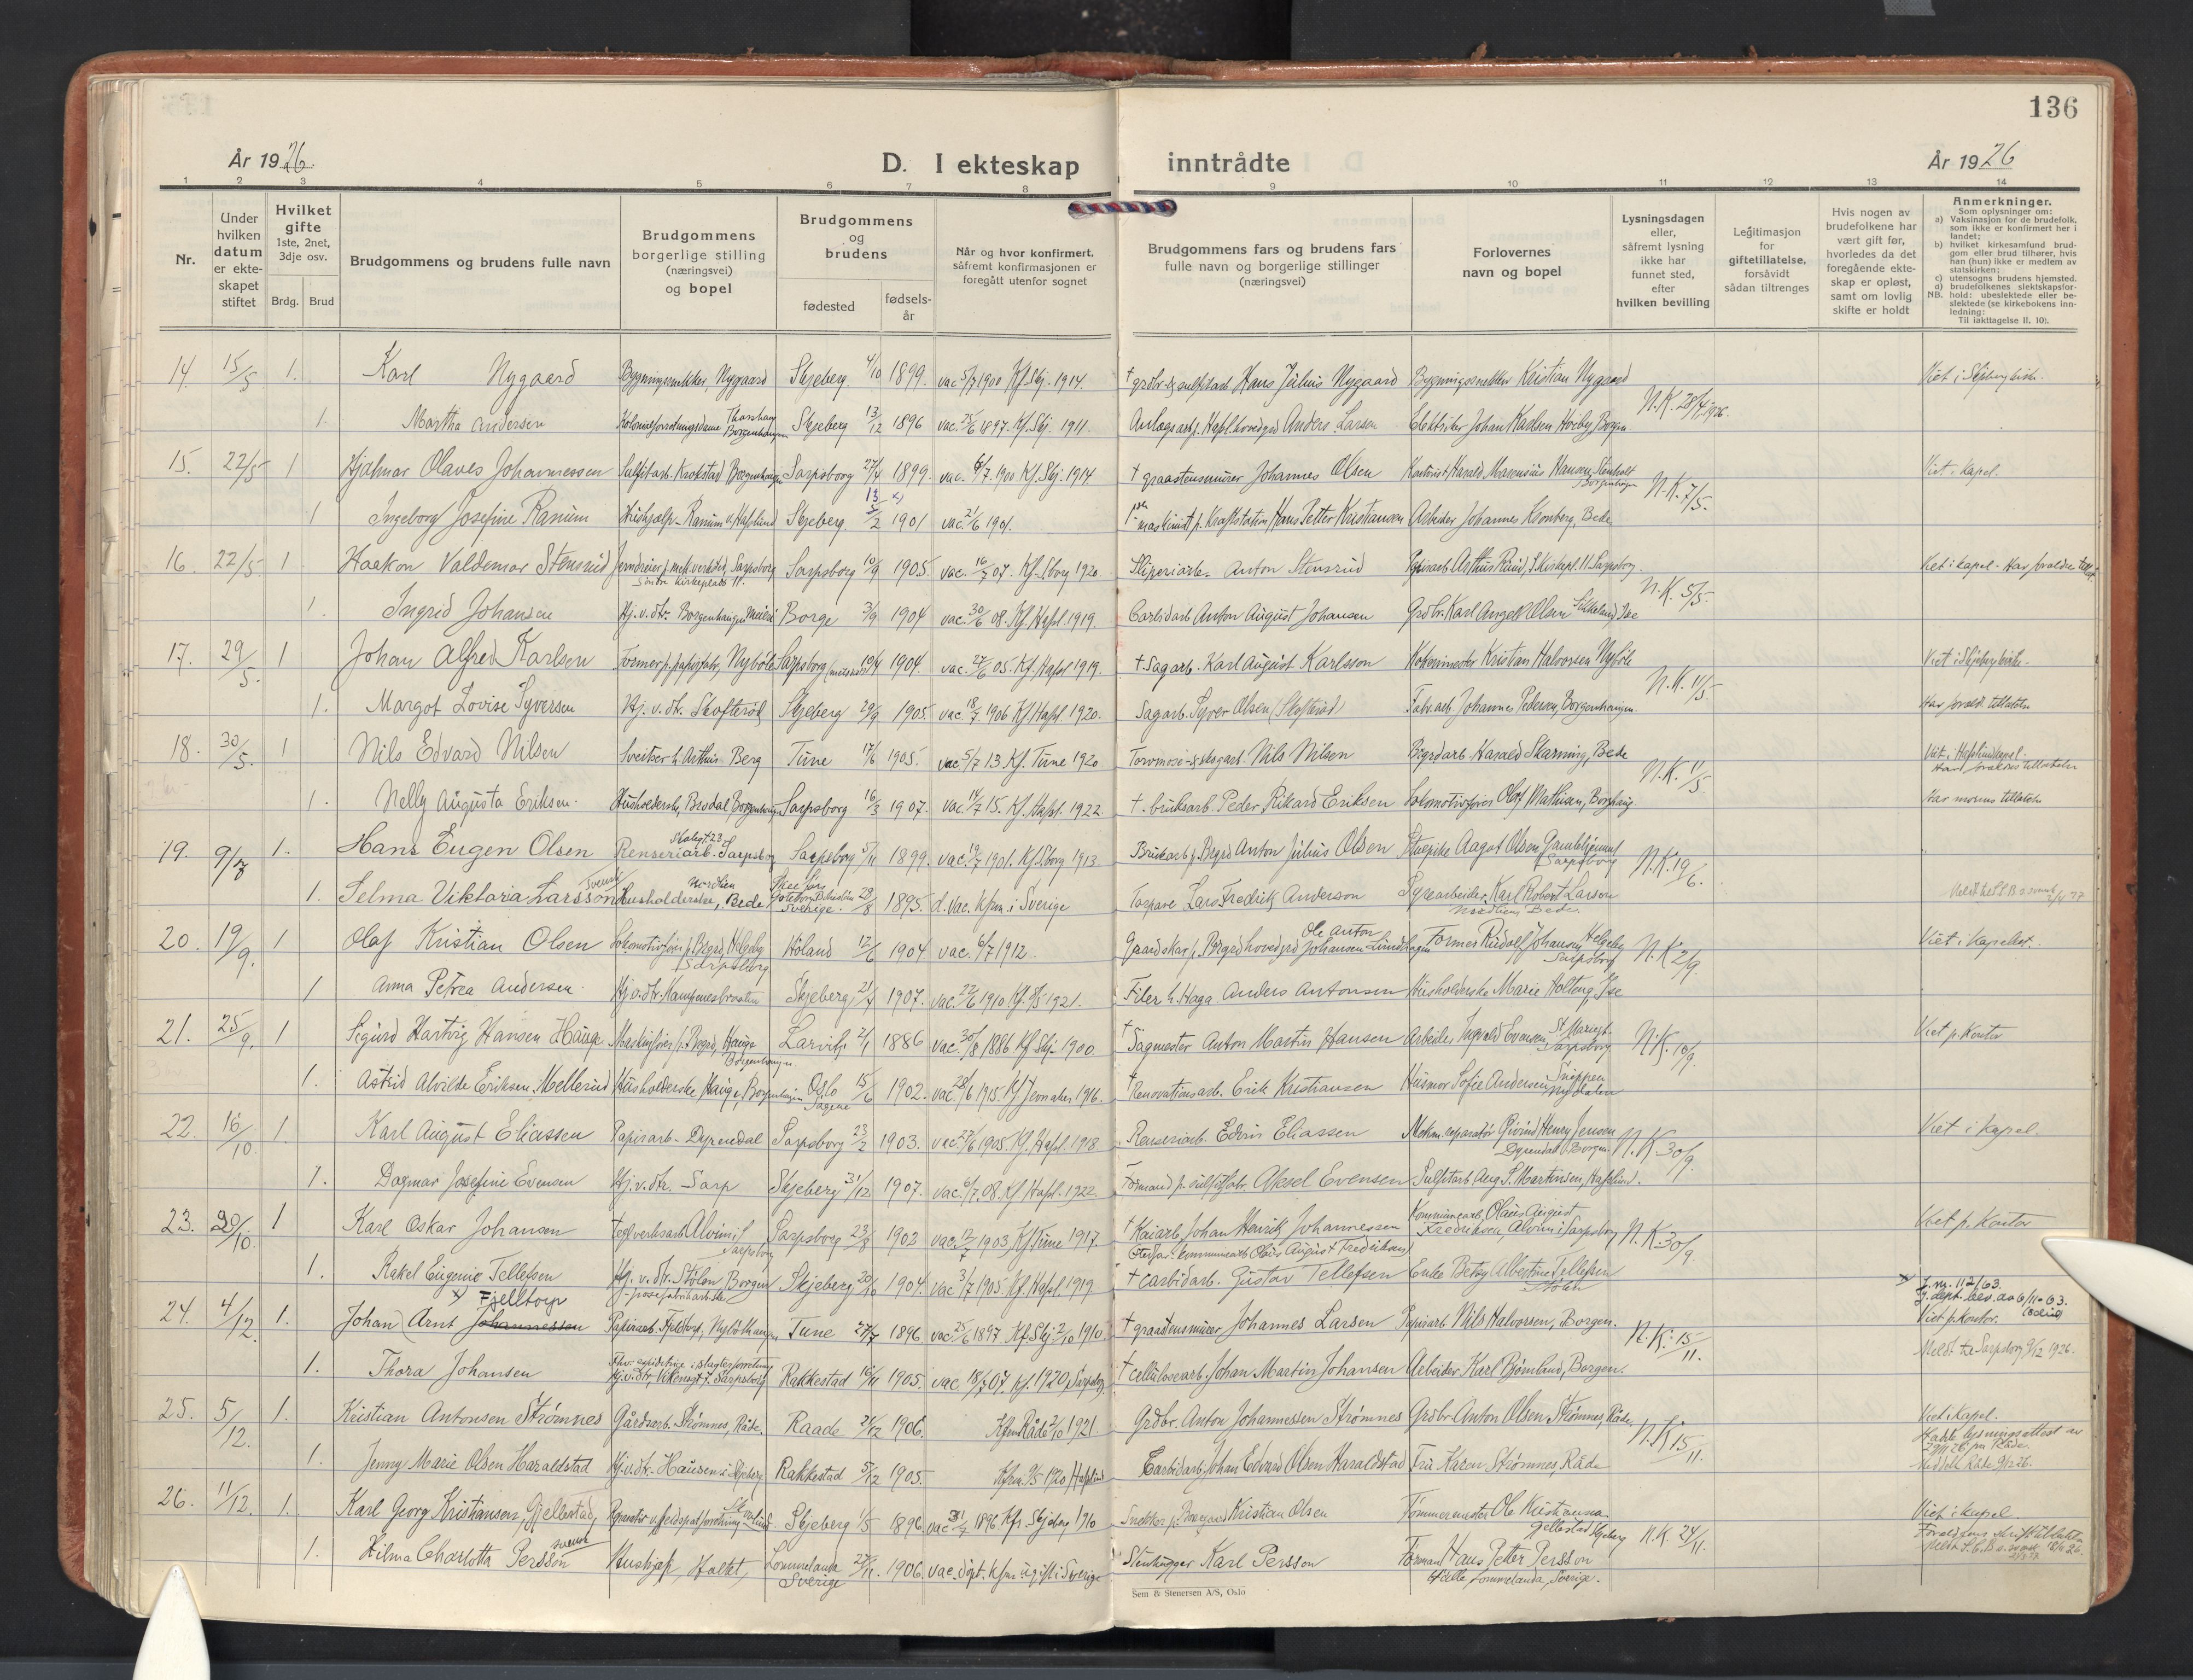 136
År 1926.
D. I ekteskap inntrådte
År 1926
1 2 3 4 5 6 7 8 9 10 11 12 13 14
Nr.
Under hvilken datum er ekteskapet stiftet
Hvilket gifte 1ste, 2net, 3dje osv.
Brdg. Brud
Brudgommens og brudens fulle navn
Brudgommens borgerlige stilling (næringsvei) og bopel
Brudgommens og brudens
fødested
fødselsår
Når og hvor konfirmert, såfremt konfirmasjonen er foregått utenfor sognet
Brudgommens fars og brudens fars fulle navn og borgerlige stillinger (næringsvei)
Forlovernes navn og bopel
Lysningsdagen eller, såfremt lysning ikke har funnet sted, efter hvilken bevilling
Legitimasjon for giftetillatelse, forsåvidt sådan tiltrenges
Hvis nogen av brudefolkene har vært gift før, hvorledes da det foregående ekteskap er opløst, samt om lovlig skifte er holdt
Anmerkninger.
Som oplysninger om:
a) Vaksinasjon for de brudefolk, som ikke er konfirmert her i landet;
b) hvilket kirkesamfund brudgom eller brud tilhører, hvis han (hun) ikke er medlem av statskirken;
c) utensogns brudens hjemsted.
d) brudefolkenes slektskapsforhold: ubeslektede eller beslektede (se kirkebokens innledning:
NB. Til iakttagelse II, 10).
14. 15/5 1. Karl Nygaard Bygningssnekker, Nygaard Skjeberg 4/10 1899. vac 5/7 1900 Kf. Skj. 1914. † grdbr. & sulfitarb. Hans Julius Nygaard Bygningssnekker Kristian Nygaard N.K. 28/4 1926. Viet i Skjeberg kirke.
1. Martha Andersen Skjeberg 13/12 1896 vac. 25/6 1897. Kf. Skj. 1911. Anders Larsen Elektriker Johan Karlsen Høiby, Borgen
15. 22/5 1 Hjalmar Olaves Johannessen Sulfitarb. Krokstad Borgenhaugen Sarpsborg 27/4 1899. vac. 6/7 1900 Kf. Skj. 1914 † graastensmurer Johannes Olsen Kontorist Harald Marensius Hansen, Stenholt Borgenhaugen N.K. 7/5. Viet i Kapel.
1 Ingeborg Josefine Ranum Hushjælp - Ranum v/Hafslund Skjeberg 13/2 1901 vac. 21/6 1901. maskinist p. Kraftstation Hans Petter Kristiansen Arbeider Johannes Kronberg, Bede
16. 22/5 1 Haakon Valdemar Stensrud Jerndreier p. mek. verksted, Sarpsborg Søndre Kirkeplads 11. Sarpsborg 10/9 1905. vac. 16/7 07. Kf. Sborg 1920 Sliperiarb. Anton Stensrud Papirarb. Arthur Ruud, S. Kirkepl. 11 Sarpsborg. N.K. 5/5. Viet i kapel - Har forældres tillat.
1. Ingrid Johansen Hj. v. dtr. Borgenhaugen Meieri Borge 3/9 1904 vac. 30/6 08. Kf. Hafsl. 1919. Carbidarb. Anton August Johansen Grdbr. Karl Angell Olsen Ise
17. 29/5. 1 Johan Alfred Karlsen Former p. papirfabr., Nybøle Sarpsborg 10/4 1904. vac. 27/6 05. Kf. Hafsl 1919. † Sagarb. Karl August Karlsson Kokerimester Kristian Halvorsen Nybøle N.K. 11/5 Viet i Skjeberg kirke.
1. Margot Lovise Syversen Hj. v. dtr. Skofterød Skjeberg 29/9 1905 vac. 18/7 1906 Kf. Hafsl. 1920. Sagarb. Syver Olsen (Skofterød) Fabr. arb. Johannes Pedersen, Borgenhaugen. Har foræld. tillatelse
18. 30/5. 1 Nils Edvard Nilsen Sveitser h. Arthur Berg Tune 17/6 1905. vac 5/7 13. Kf. Tune 1920 Torvmose- & skogarb. Nils Nilsen Brgrdarb. Harald Skarning, Bede N.K. 11/5. Viet i Hafslund kapel. Har forældres tillatelse
1. Nelly Augusta Eriksen. Husholderske, Brodal Borgenhaugen Sarpsborg 16/3 1907. vac. 14/7 15. Kf. Hafsl. 1922. †. bruksarb. Peder Rikard Eriksen Lokomotivfører Olaf Mathisen, Borghaug. Har morens tillatelse
19. 9/7 1. Hans Eugen Olsen Renseriarb. Sarpsborg Sarpsborg 5/11 1899. vac. 19/7 1901. Kf. Sborg 1913. Bruksarb. p. Brgrd Anton Julius Olsen Stuepike Aagot Olsen, Gamlehjemmet Sarpsborg N.K. 19/6.
1. Selma Viktoria Larsson svensk Husholderske, Nordlien Bede Sverige. 28/8 1895. d. vac. kfm. i Sverige Lars Fredrik Anderson Syrearbeider Karl Robert Larson Nordlien Bede
20. 19/9. 1 Olaf Kristian Olsen Lokomotivfører p. Brgrd, Helgeby Sarpsborg Høland 12/6 1904 vac. 6/7 1912. Gaardskar p. Brgrd hovedgrd Ole Anton Johansen Lundhagen Former Rudolf Johansen, Helgeby Sarpsborg N.K. 2/9. Viet i kapellet.
1 Anna Petrea Andersen. Hj. v. dtr. Hampenesbraaten Skjeberg 21/7 1907. vac. 22/6 1910 Kf. 1921. Filer h. Haga Anders Antonsen Husholderske Marie Holteng, Ise
21. 25/9. 1 Sigurd Hartvig Hansen Hauge Maskinfører p. Brgrd, Hauge Borgenhaugen. Larvik 21/1 1886 vac. 30/8 1886 Kf. Skj. 1900 † Sagmester Anton Martin Hansen Arbeider Ingvald Evensen, St. Mariegt. Sarpsborg N.K. 10/9. Viet p. Kontor
1. Astrid Alvilde Eriksen Mellerud Husholderske Hauge, Borgenhaugen Oslo Sagene 15/6 1902. vac. 28/6 1915. Kf. Jevnaker 1916. † Renovationsarb. Erik Kristiansen Husmor Sofie Andersen, Snippen Nydalen
22. 16/10. 1. Karl August Eliassen Papirarb. - Dyrendal Sarpsborg 23/2 1903. vac 27/6 1905 Kf. Hafsl. 1918 Renseriarb. Edvin Eliassen Mekan. reparatør Øivind Henry Jensen Dyrendal Borgen. N.K. 30/9. Viet i kapel.
1. Dagmar Josefine Evensen Hj. v. dtr. Sarp Skjeberg 31/12 1907. vac. 6/7 08. Kf. Hafsl. 1922. Formand p. sulfitfabr. Aksel Evensen Sulfitarb. Aug. S. Martinsen, Hafslund.
23. 30/10. 1 Karl Oskar Johansen Teglverksarb. Alvim i Sarpsborg Sarpsborg 23/8 1902 vac. 12/7 1903 Kf. Tune 1917. † Kaiarb. Johan Henrik Johannessen Kommunearb. Olaus August Fredriksen, Alvim i Sarpsborg N.K. 30/9. Viet p. Kontor
(Stefar: kommunearb Olaus August Fredriksen)
1. Rakel Eugenie Tellefsen Hj. v. dtr. Stølen, Borgen Skjeberg 20/10 1904. vac 3/7 1905. Kf. Hafsl. 1919 † Carbidarb. Gustav Tellefsen Enke Betsy Albertine Tellefsen Stølen
24. 4/12. 1. Johan Arnt Johannessen x) Fjelltorp Papirarb. Fjeldtorp, Nyböthaugen Tune 27/7 1896 vac. 25/6 1897. Kf. Skj. 2/10 1910. † graastensmurer Johannes Larsen Papirarb Nils Halvorsen, Borgen. N.K. 15/11. x) J. nr. 112/63. J. dept. bev. av 6/11-63. Viet p. Kontor.
1. Thora Johansen Rakkestad 16/11 1905. vac. 18/7 07. Kf. 1920, Sarpsborg. † cellulosearb. Johan Martin Johansen Arbeider Karl Bjørnland, Borgen. Meldt til Sarpsborg 9/12 1926.
25. 5/12. 1. Kristian Antonsen Strømnes Gårdsarb. Strømnes, Råde. Raade 24/12 1906. Kfm Råde 2/10 1921. Grdbr. Anton Johannessen Strømnes Grdbr. Anton Olsen Strømnes, Råde N.K 15/11. Viet i Kapel. Hadde lysningsattest av 29/11 26 fra Råde. Meddelt Råde 9/12 26.
1. Jenny Marie Olsen Haraldstad Hj. v. dtr. Hausen i Skjeberg Rakkestad 5/12 1905. Kfm. 9/5 1920 Hafslund Carbidarb. Johan Edvard Olsen Haraldstad Fru Karen Strømnes, Råde
26. 11/12. 1. Karl Georg Kristiansen, Gjellestad, Skjeberg 1/5 1896. 1896 Kfr. Skjeberg 1910 Snekker Kristian Olsen Tømmermester Ole Kristiansen Gjellestad Skjeberg N.K. 24/11. Viet i kapel.
1. Hilma Charlotta Persson svensk Hushjelp, Holtet, Lommelanda Sverige 27/11. 1906. vac. døpt. kfm. ugift i Sverige Stenhugger Karl Persson Forman Hans Petter Persson Hälle Lommelanda, Sverige.
Sem & Stenersen A/S, Oslo